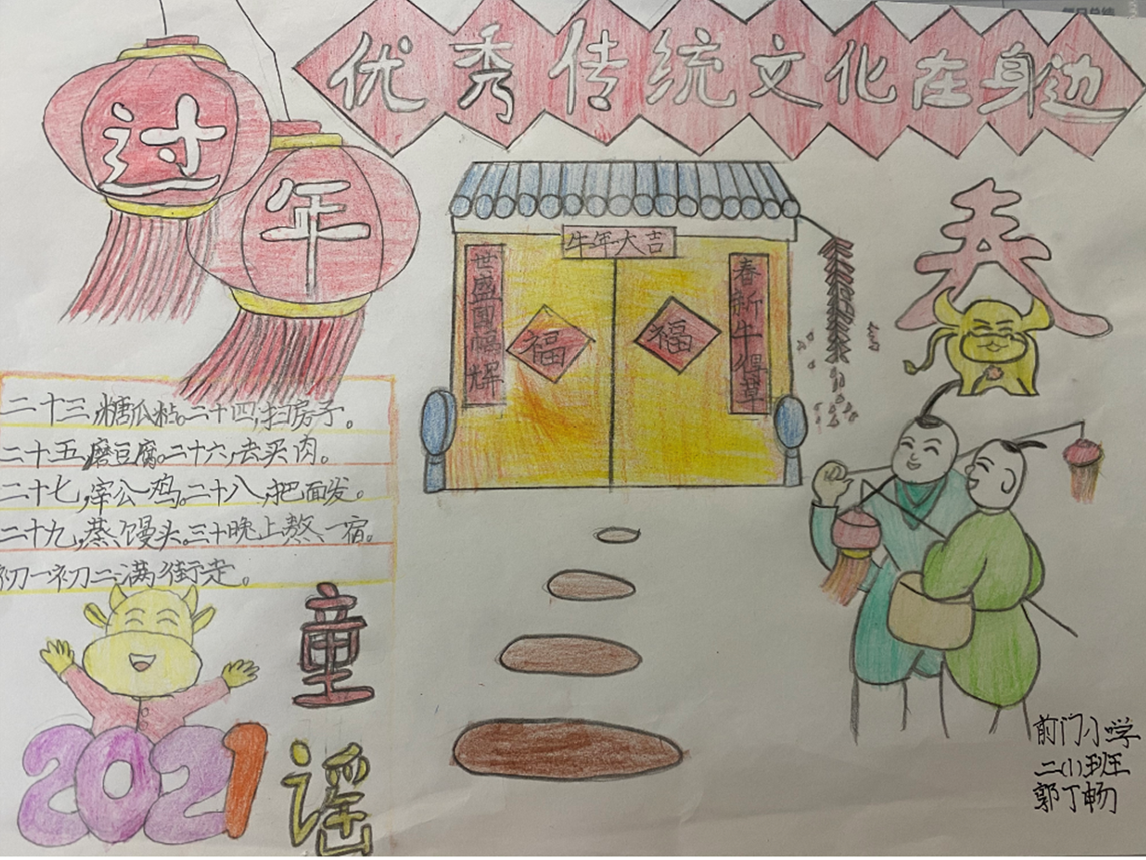 优秀传统文化在身边
过年
牛年大吉
世盛国幅辉
春新牛得草
福
福
春
二十三,糖瓜粘。二十四,扫房子。
二十五,磨豆腐。二十六,去买肉。
二十七,宰公鸡。二十八,把面发。
二十九,蒸馒头。三十晚上熬一宿。
初一初二满街走。
童谣
2021
前门小学
二(1)班
郭丁畅